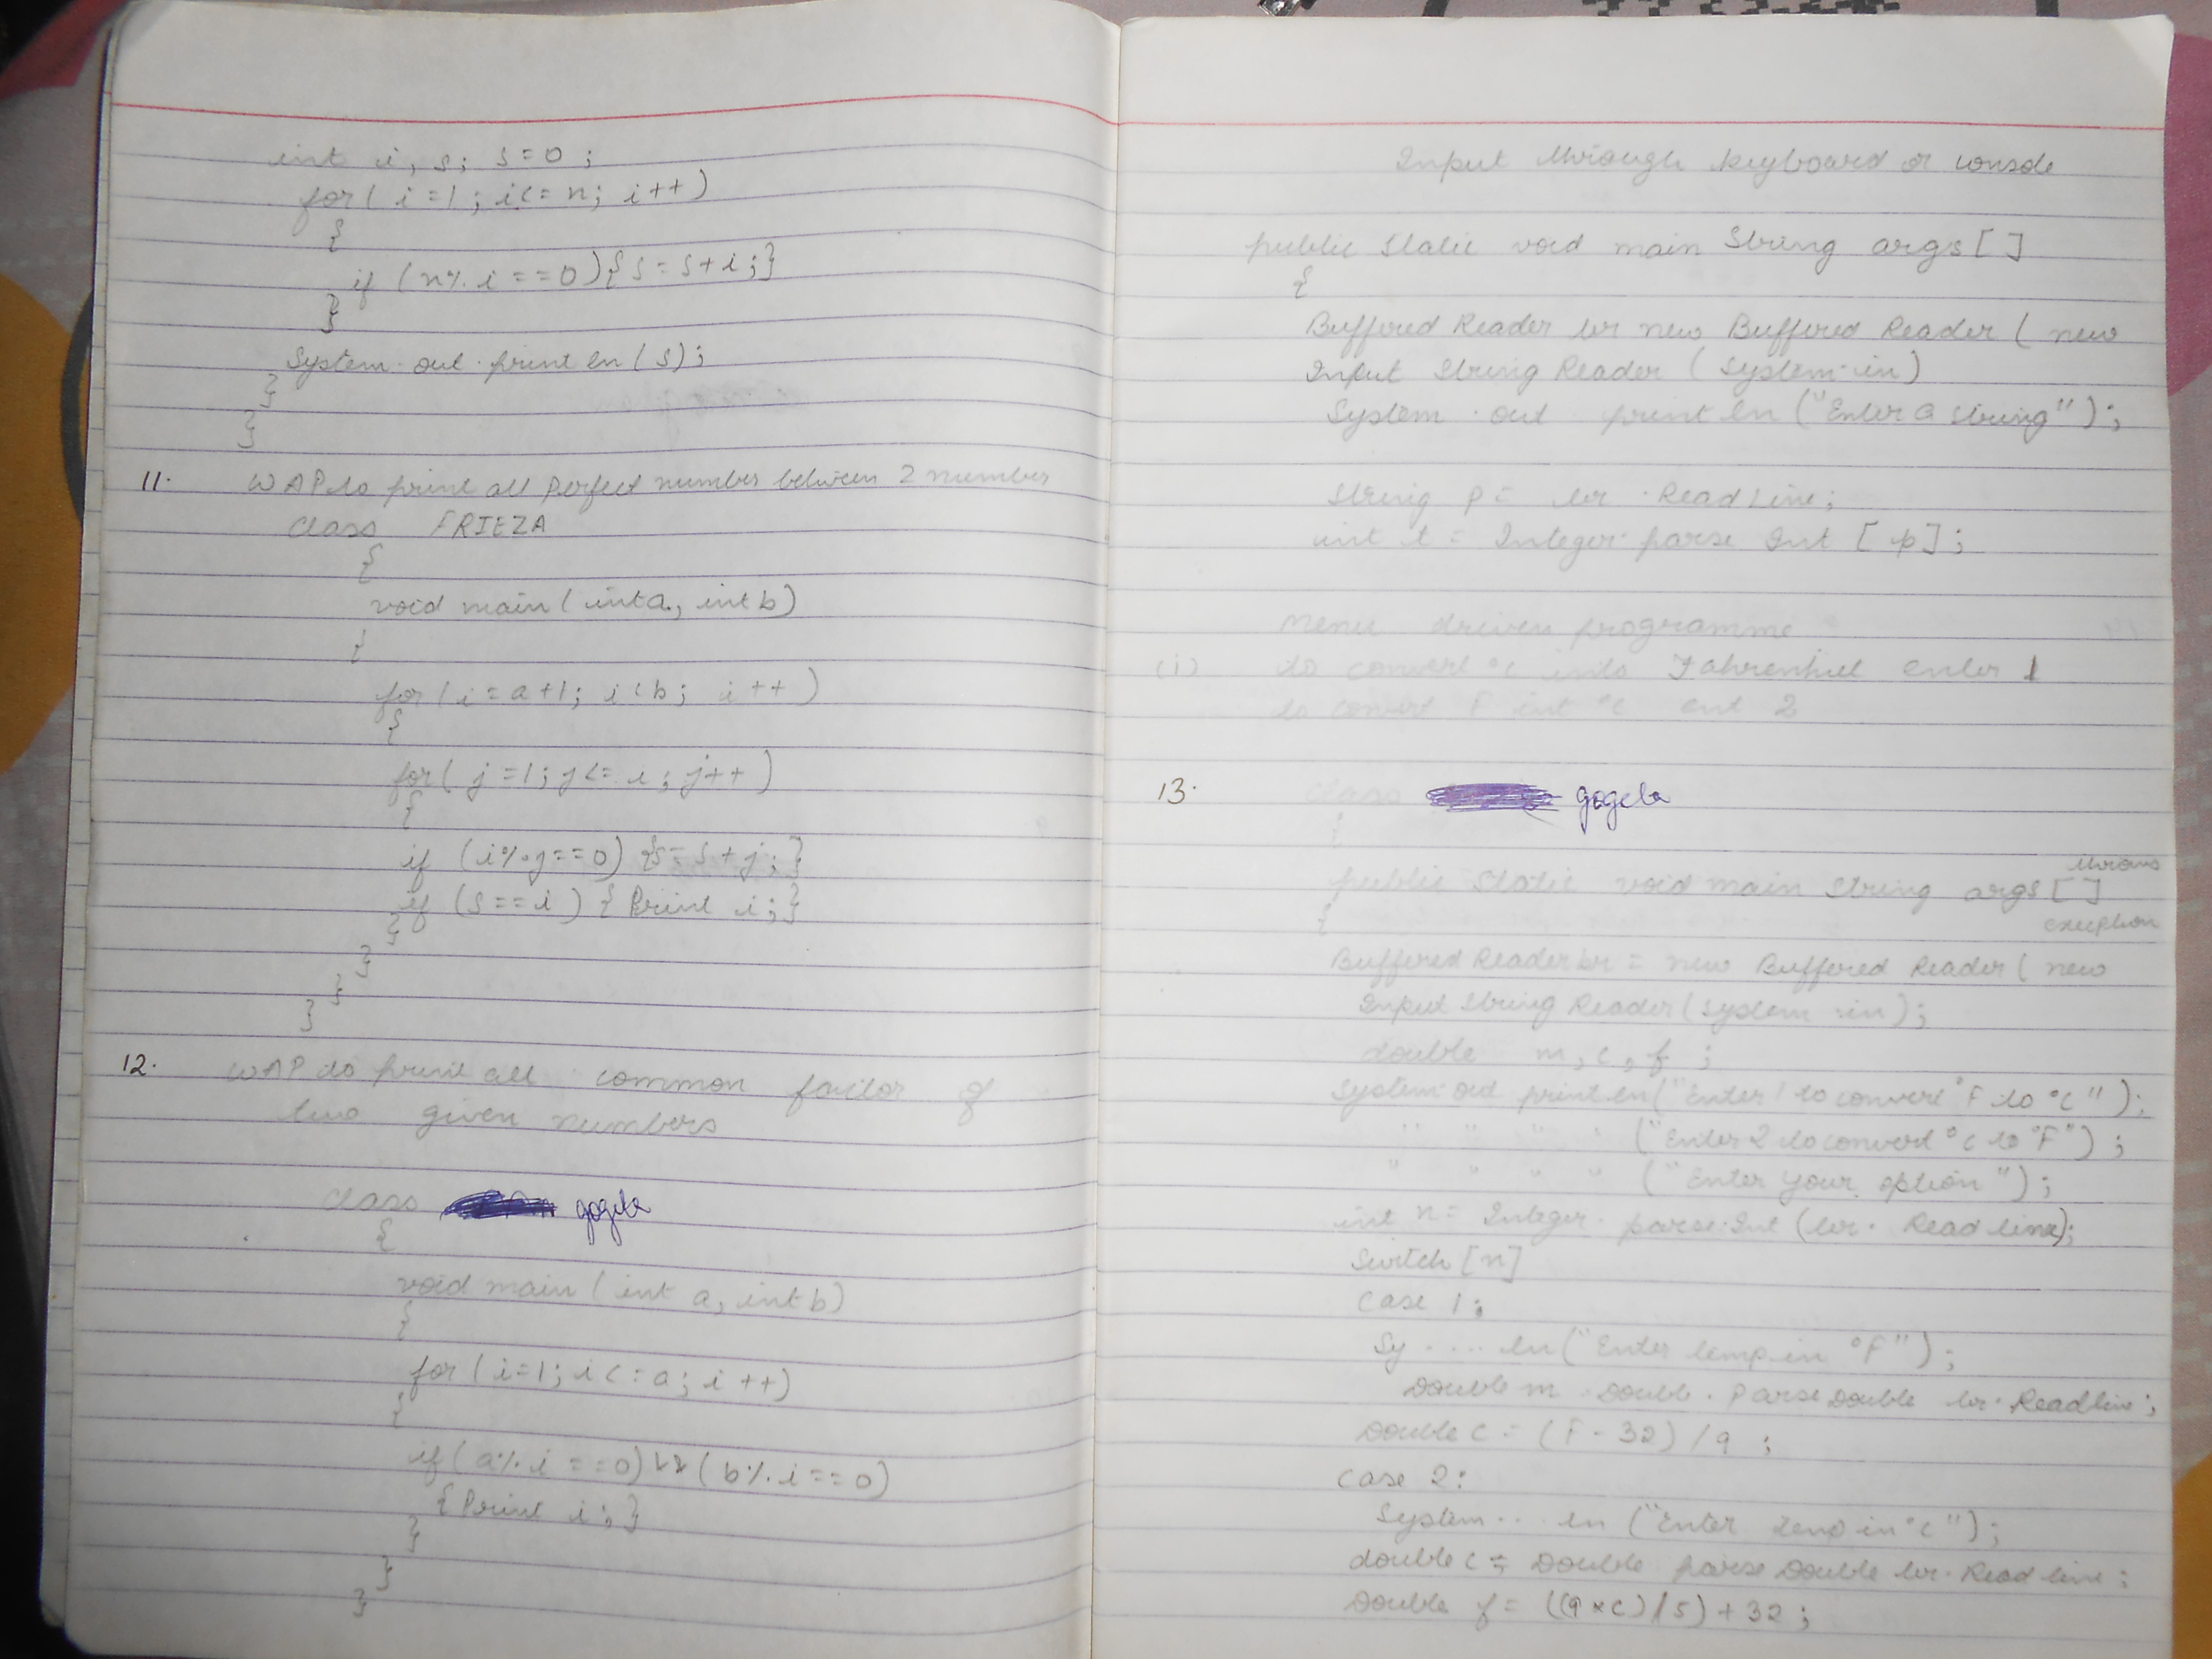 int i, s; s=0;
for( i=1; i<=n; i++)
{
if (n%i==0){s=s+i;}
}
System.out.println(s);
}
}
11. WAP to print all perfect number between 2 number
class FRIEZA
{
void main(int a, int b)
{
for(i=a+1; i<b; i++)
{
for(j=1; j<=i; j++)
{
if (i%j==0) {s=s+j;}
if (s==i) {Print i;}
}
}
}
}
12. WAP to print all common factor of
two given numbers
class gogeta
{
void main(int a, int b)
{
for(i=1; i<=a; i++)
{
if(a%i==0)&&(b%i==0)
{Print i;}
}
}
}
Input through keyboard or console
public static void main String args[]
{
Buffered Reader br new Buffered Reader ( new
Input String Reader (System.in)
System.out println ("Enter a string");
String p= br.ReadLine;
int t = Integer.parse Int [p];
Menu driven programme
(i) to convert °c into Fahrenhiet enter 1
to convert F int °c ent 2
13. class gogeta
{
public static void main String args[] throws
{ exception
Buffered Reader br = new Buffered Reader ( new
Input String Reader (System.in);
double m, c, f;
System.out println("Enter 1 to convert °F to °C");
" " " " ("Enter 2 to convert °C to °F");
" " " " ("Enter your option");
int n= Integer.parse.Int (br.Read line);
Switch [n]
Case 1:
Sy .... ln("Enter temp in °F");
Double m Double.Parse Double br.Readline;
Double c = (F-32)/9;
Case 2:
System... ln ("Enter temp in °c");
double c = Double parse Double br.Read line;
Double f = ((9×c)/5)+32;